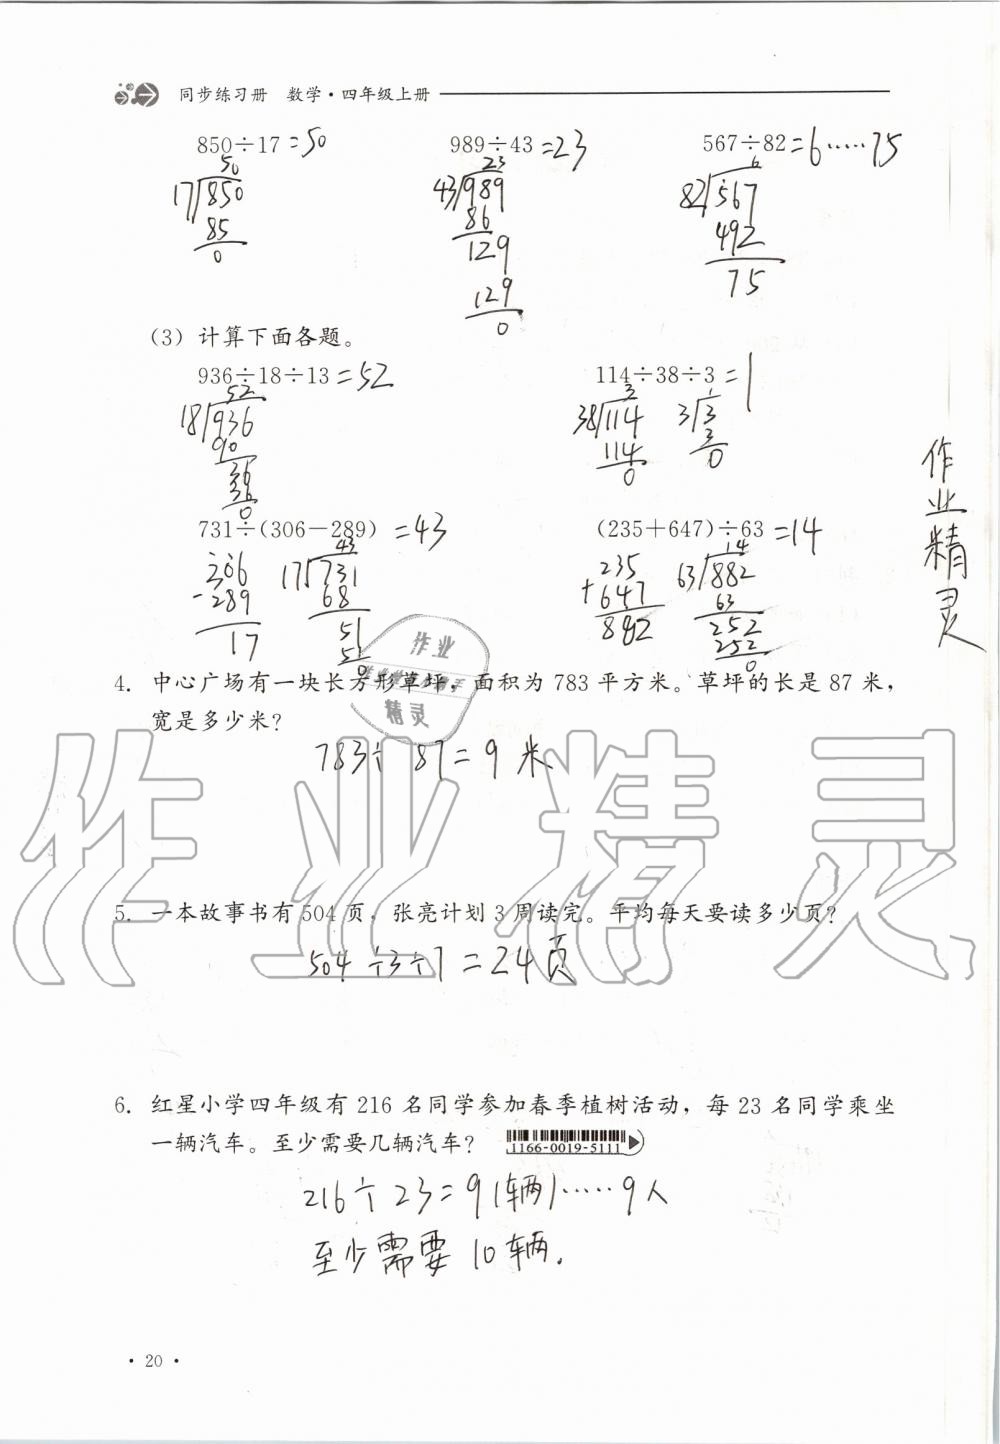 同步练习册 数学·四年级上册
850÷17=50 989÷43=23 567÷82=6……75
50 23 6
17 850 43 989 82 567
85 86 492
0 129 75
129
0
(3) 计算下面各题。
936÷18÷13=52 114÷38÷3=1
52 3 1
18 936 38 114 3 3
90 114 3
36 0 0
36
0
731÷(306-289)=43 (235+647)÷63=14
43 14
306 17 731 235 63 882
-289 68 +647 63
17 51 882 252
51 252
0 0
作业精灵
作业
精灵
4. 中心广场有一块长方形草坪，面积为 783 平方米。草坪的长是 87 米，
宽是多少米？
783÷87=9米
作业精灵
5. 一本故事书有 504 页，张亮计划 3 周读完。平均每天要读多少页？
504÷3÷7=24页
6. 红星小学四年级有 216 名同学参加春季植树活动，每 23 名同学乘坐
一辆汽车。至少需要几辆汽车？ 1166-0019-5111
216÷23=9(辆)……9人
至少需要10辆.
· 20 ·